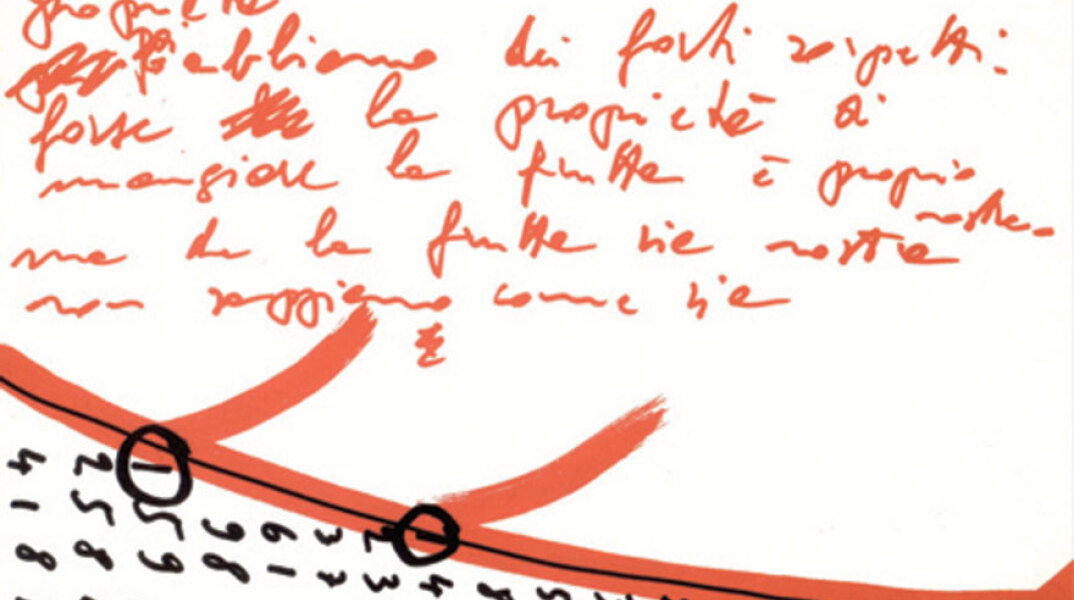 proprietà
abbiamo dei forti sospetti:
forse la proprietà di
mangiare la frutta è proprio
nostra.
ma che la frutta sia nostra
non sappiamo come sia
4 2 1
1 5 5 9 6 3 2
8 8 9 8 1 7 3 4 8 5